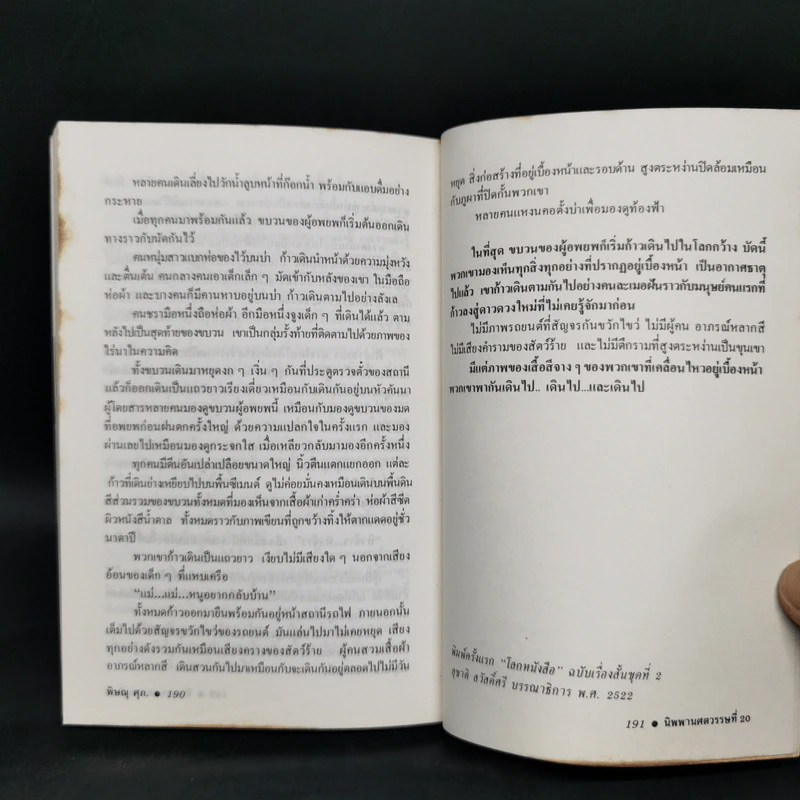 หลายคนเดินเลี่ยงไปวักน้ำลูบหน้าที่ก๊อกน้ำ พร้อมกับแอบดื่มอย่าง
กระหาย
เมื่อทุกคนมาพร้อมกันแล้ว ขบวนของผู้อพยพก็เริ่มต้นออกเดิน
ทางราวกับนัดกันไว้
คนหนุ่มสาวแบกห่อของไว้บนบ่า ก้าวเดินนำหน้าด้วยความมุ่งหวัง
และตื่นเต้น คนกลางคนเอาเด็กเล็ก ๆ มัดเข้ากับหลังของเขา ในมือถือ
ห่อผ้า และบางคนก็มีคานหาบอยู่บนบ่า ก้าวเดินตามไปอย่างลังเล
คนชรามือหนึ่งถือห่อผ้า อีกมือหนึ่งจูงเด็ก ๆ ที่เดินได้แล้ว ตาม
หลังไปเป็นสุดท้ายของขบวน เขาเป็นกลุ่มรั้งท้ายที่ติดตามไปด้วยภาพของ
ไร่นาในความคิด
ทั้งขบวนเดินมาหยุดงก ๆ เงิ่น ๆ กันที่ประตูตรวจตั๋วของสถานี
แล้วก็ออกเดินเป็นแถวยาวเรียงเดี่ยวเหมือนกับเดินกันอยู่บนหัวคันนา
ผู้โดยสารหลายคนมองดูขบวนผู้อพยพนี้ เหมือนกับมองดูขบวนของมด
ที่อพยพก่อนฝนตกครั้งใหญ่ ด้วยความแปลกใจในครั้งแรก และมอง
ผ่านเลยไปเหมือนมองดูกระจกใส เมื่อเหลียวกลับมามองอีกครั้งหนึ่ง
ทุกคนมีตีนอันเปล่าเปลือยขนาดใหญ่ นิ้วตีนแตกแยกออก แต่ละ
ก้าวที่เดินย่างเหยียบไปบนพื้นซีเมนต์ ดูไม่ค่อยมั่นคงเหมือนเดินบนพื้นดิน
สีส่วนรวมของขบวนทั้งหมดที่มองเห็นจากเสื้อผ้าเก่าคร่ำคร่า ห่อผ้าสีซีด
ผิวหนังสีน้ำตาล ทั้งหมดราวกับภาพเขียนที่ถูกขว้างทิ้งให้ตากแดดอยู่ชั่ว
นาตาปี
พวกเขาก้าวเดินเป็นแถวยาว เงียบไม่มีเสียงใด ๆ นอกจากเสียง
อ้อนของเด็ก ๆ ที่แหบเครือ
“แม่...แม่...หนูอยากกลับบ้าน”
ทั้งหมดก้าวออกมายืนพร้อมกันอยู่หน้าสถานีรถไฟ ภายนอกนั้น
เต็มไปด้วยสัญจรขวักไขว่ของรถยนต์ มันแล่นไปมาไม่เคยหยุด เสียง
ทุกอย่างดังรวมกันเหมือนเสียงครางของสัตว์ร้าย ผู้คนสวมเสื้อผ้า
อาภรณ์หลากสี เดินสวนกันไปมาเหมือนกับจะเดินกันอยู่ตลอดไปไม่มีวัน
พิษณุ ศุภ. ● 190
หยุด สิ่งก่อสร้างที่อยู่เบื้องหน้าและรอบด้าน สูงตระหง่านปิดล้อมเหมือน
กับภูผาที่ปิดกั้นพวกเขา
หลายคนแหงนคอตั้งบ่าเพื่อมองดูท้องฟ้า
ในที่สุด ขบวนของผู้อพยพก็เริ่มก้าวเดินไปในโลกกว้าง บัดนี้
พวกเขามองเห็นทุกสิ่งทุกอย่างที่ปรากฏอยู่เบื้องหน้า เป็นอากาศธาตุ
ไปแล้ว เขาก้าวเดินตามกันไปอย่างคนละเมอฝันราวกับมนุษย์คนแรกที่
ก้าวลงสู่ดาวดวงใหม่ที่ไม่เคยรู้จักมาก่อน
ไม่มีภาพรถยนต์ที่สัญจรกันขวักไขว่ ไม่มีผู้คน อาภรณ์หลากสี
ไม่มีเสียงคำรามของสัตว์ร้าย และไม่มีตึกรามที่สูงตระหง่านเป็นขุนเขา
มีแต่ภาพของเสื้อสีจาง ๆ ของพวกเขาที่เคลื่อนไหวอยู่เบื้องหน้า
พวกเขาพากันเดินไป.. เดินไป...และเดินไป
พิมพ์ครั้งแรก “โลกหนังสือ” ฉบับเรื่องสั้นชุดที่ 2
สุชาติ สวัสดิ์ศรี บรรณาธิการ พ.ศ. 2522
191 ● นิพพานศตวรรษที่ 20